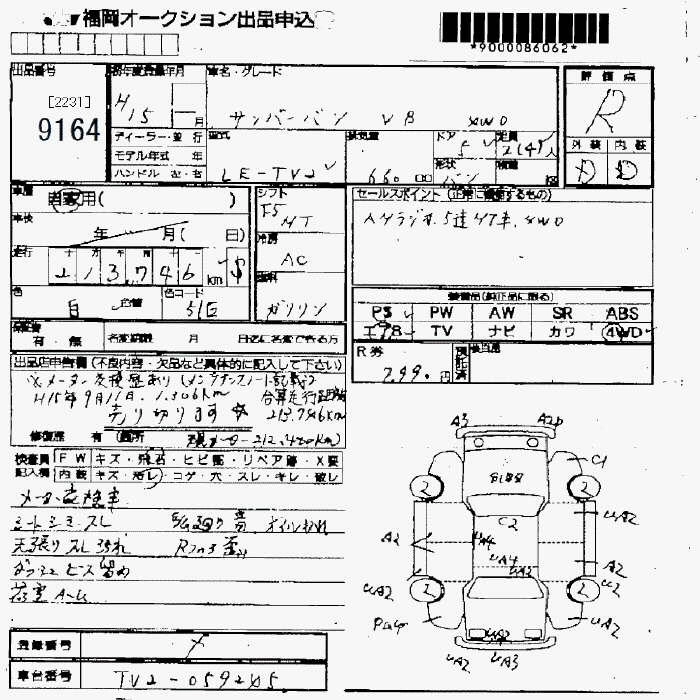 福岡オークション出品申込
*9000086062*
出品番号
[2231]
9164
車名・グレード
H15 月
サンバーバン VB 4WD
評価点
R
外装 内装
D D
ディーラー・並行
モデル年式 年
ハンドル 左・右
型式
LE-TV2
排気量
660
ドア
5
形状
バン
定員
2(4)人
積載
車歴
自家用( )
車検
年 月( 日)
走行
213,746 km
色
白 色替
色コード
51E
シフト
F5
MT
冷房
AC
燃料
ガソリン
セールスポイント (正常に機能するもの)
AMラジオ、5速MT車、4WD
装備品(純正品に限る)
PS PW AW SR ABS
エアB TV ナビ カワ 4WD
有・無
名変期限 月 日迄に名変できる方
R券
預託済
7,990円
出品店申告欄 (不良内容・欠品など具体的に記入して下さい)
※メーター交換歴あり(メンテナンスノート記載)
H15年9月11日 1,306km
合算走行距離
213,746km
売り切ります ☆
修復歴 有 (箇所
現メーター212,440km)
検査員
記入欄
FW キズ・飛石・ヒビ割・リペア跡・X要
内装 キズ・汚レ・コゲ・穴・スレ・キレ・破レ
メーター交換車
シートシミ・スレ
E/G廻り音 オイルもれ
天張りスレ汚れ
Rフロア歪み
ダッシュビス留め
荷室A・U
登録番号
メ
車台番号
TV2-059245
A3 A2P
C1
2 2
C2
UA2
A2
UA4
UA4
UA2
A2
UA2
2 2
U2
UA2
UA2
UA2
UA2 UA3